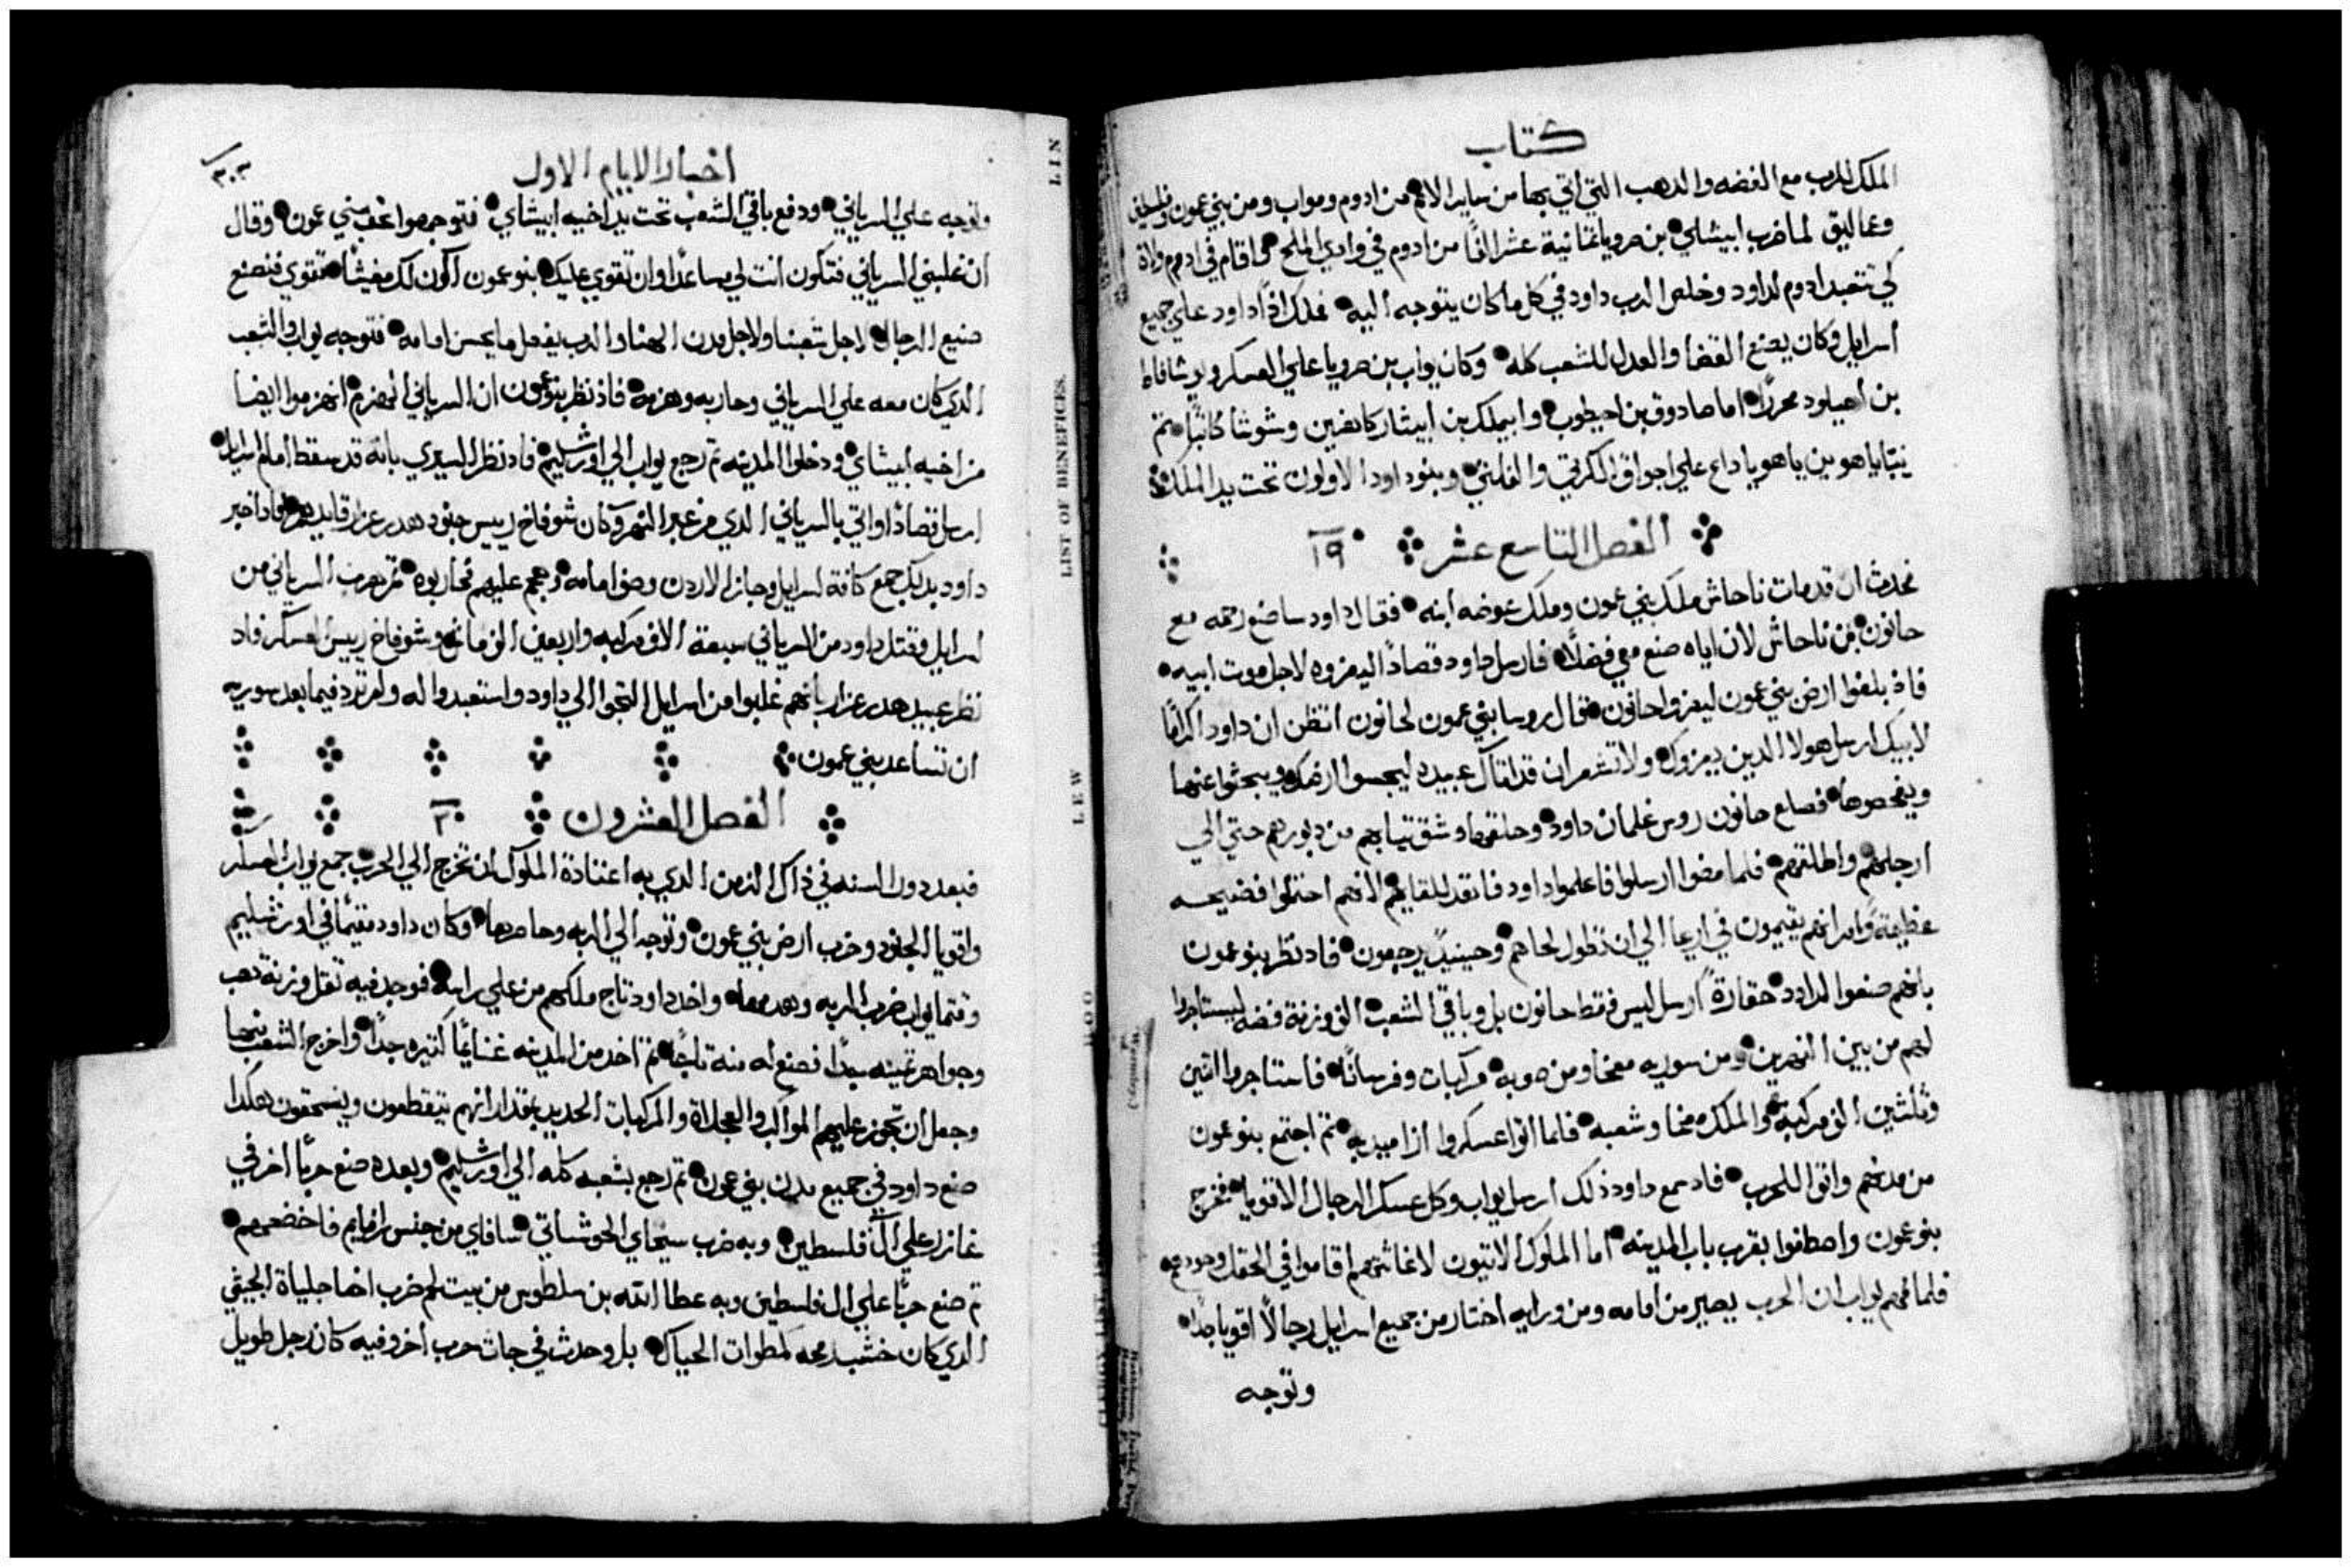 كتاب
الملك للرب مع الفضه والدهب التي اتي بها من ساير الامم من ادوم ومواب ومن بني عمون وفلسطين
وعماليق لما ضرب ابيشاي بن صرويا ثمانية عشر الفًا من ادوم في وادي الملح واقام في ادوم
كي تتعبد ادوم لداود وخلص الرب داود في كل ما كان يتوجه اليه فملك اذًا داود علي جميع
اسرايل وكان يصنع القضا والعدل للشعب كله وكان يواب بن صرويا علي العسكر ويوشافاط
بن احيلود محررًا اما صادوق بن احيطوب وابيملك بن ابيثار كاهنين وشوشا كاتبًا ثم
بناياهو بن ياهوياداع علي اجواق الكرتي والفلتي وبنو داود الاولون تحت يد الملك
الفصل التاسع عشر ١٩
فحدث ان قد مات ناحاش ملك بني عمون وملك عوضه ابنه فقال داود ساضع رحمه مع
حانون بن ناحاش لان اباه صنع معي فضلًا فارسل داود قصادًا ليعزوه لاجل موت ابيه
فاذ بلغوا ارض بني عمون ليعزوا حانون فقال روسا بني عمون لحانون اتظن ان داود اكرامًا
لابيك ارسل هولا الدين يعزوك ولا تشعر ان قد اتاك عبيده ليجسوا ارضك ويبحثوا عنها
ويفحصوها فصلع حانون روس غلمان داود وحلقها وشق تيابهم من دبورهم حتي الي
ارجلهم واطلقهم فلما مضوا ارسلوا فاعلموا داود فانفد للقايهم لانهم احتملوا فضيحه
عظيمة وامر انهم يقيمون في اريحا الي ان تطول لحاهم وحينيدٍ يرجعون فاد نظر بنو عمون
بانهم صنعوا لداود حقارةً ارسل ليس فقط حانون بل وباقي الشعب الف وزنة فضه ليستاجروا
لهم من بين النهرين ومن سوريه معخا ومن صوبه مركبات وفرسانًا فاستاجروا اتنين
وثلثين الف مركبة والملك معخا وشعبه فلما اتوا عسكروا ازا ميدبه ثم اجتمع بنو عمون
من مدنهم واتوا للحرب فاد سمع داود ذلك ارسل يواب وكل عسكر الرجال الاقويا فخرج
بنو عمون واصطفوا بقرب باب المدينه اما الملوك الاتيون لاغاثتهم اقاموا في الحقل وحودهم
فلما فهم يواب ان الحرب يصير من امامه ومن ورايه اختار من جميع اسرايل رجالًا اقويا جدًا
وتوجه
٣٠٣
اخبار الايام الاول
وتوجه علي السرياني ودفع باقي الشعب تحت يد اخيه ابيشاي فتوجهوا عند بني عمون وقال
ان غلبني السرياني فتكون انت لي مساعدًا وان تقوي عليك بنو عمون اكون لك مغيثًا فتقوي فنصنع
صنيع الرجال لاجل شعبنا ولاجل مدن الهنا والرب يفعل ما يحسن امامه فتوجه يواب والشعب
الدي كان معه علي السرياني وحاربه وهزمه فاذ نظر بنو عمون ان السرياني انهزم انهزموا ايضا
من اخيه ابيشاي ودخلوا المدينه تم رجع يواب الي اورشليم فاد نظر السرياني بانه قد سقط امام اسرايل
ارسل قصادًا واتي بالسرياني الدي من عبر النهر وكان شوفاخ رييس جنود هدرعزار قايدهم فاد اخبر
داود بدلك جمع كافة اسرايل وجاز الاردن وصف امامه وهجم عليهم فحاربوه ثم هرب السرياني من
اسرايل وقتل داود من السرياني سبعة الاف مركبه واربعين الف ماش وشوفاخ رييس العسكر فاد
نظر عبيد هدرعزار بانهم غلبوا من اسرايل التجوا الي داود واستعبدوا له ولم ترد فيما بعد سوريه
ان تساعد بني عمون
الفصل العشرون ٢٠
فبعد دور السنه في ذاك الزمن الدي به اعتادة الملوك ان تخرج الي الحرب جمع يواب العسكر
واقويا الجنود وخرب ارض بني عمون وتوجه الي الربه وحاصرها وكان داود مقيمًا في اورشليم
وقتما يواب ضرب الربه وهدمها واخد داود تاج ملكهم من علي راسه فوجد فيه تقل وزنة دهب
وجواهر تمينه جدًا فصنع له منه تاجًا تم اخد من المدينه غنايمًا كتيره جدًا واخرج الشعب منها
وجعل ان تجوز عليهم الموالب والعجلاة والمركبات الحديد بمقدار انهم يتقطعون ويسحقون هكدا
صنع داود في جميع مدن بني عمون تم رجع بشعبه كله الي اورشليم وبعده صنع حربًا اخر في
غازر علي ال فلسطين وبه ضرب سبخاي الحوشاتي سافاي من جنس رافايم فاخضعهم
تم صنع حربًا علي ال فلسطين وبه عطا الله بن سلطوس من بيت لحم ضرب اخا جلياة الجيتي
الدي كان خشب رمحه كمطوات الحياك بل وحدث في جات حرب اخر وفيه كان رجل طويل
LIN
LIST OF BENEFICES.
LEW